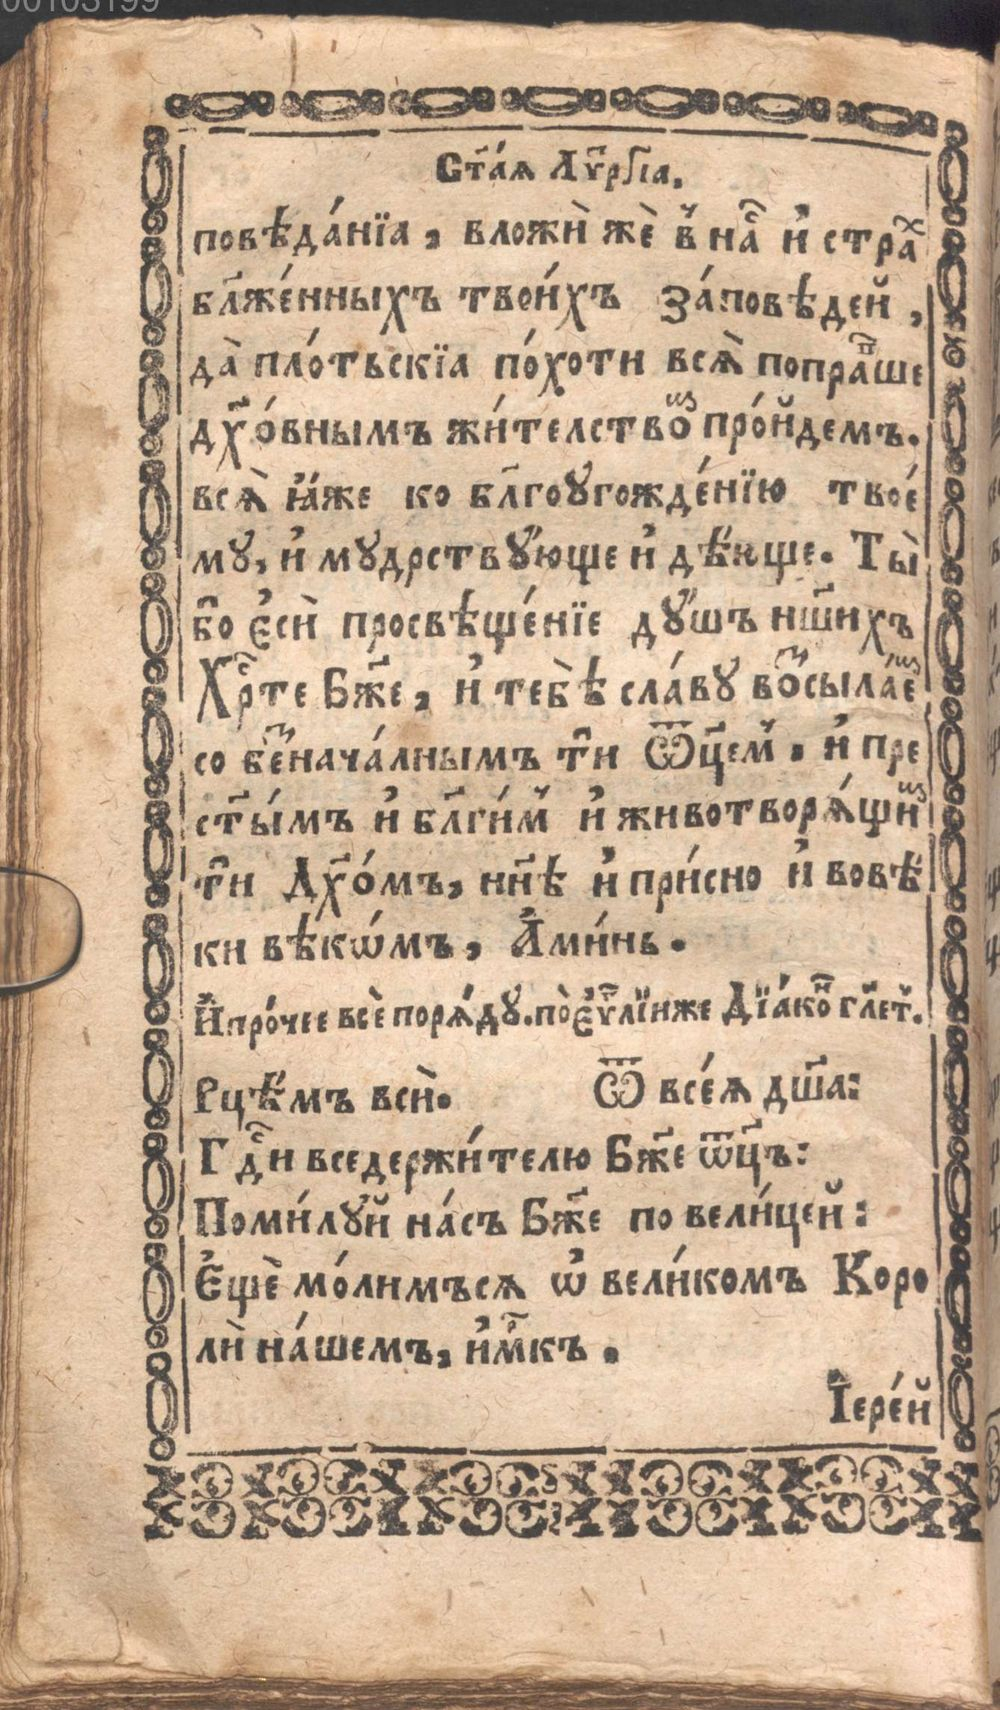 00103199
Ст҃а́ѧ Лѵ҃рг҃їа.
повѣда́нїа, вложѝ жѐ в̾ на́с и҆ стра́х
бл҃же́нныхъ твои́хъ за́повѣдей,
да̀ пло́тьскїа по́хоти всѧ̀ попра́вше
дх҃о́внымъ жи́телство́м про́йдемъ.
всѧ̀ ꙗ҆́же ко бл҃гоꙋгожде́нїю твое́
мꙋ, и҆ мꙋдрствꙋ́юще и҆ дѣ́юще. Ты̀
бо є҆сѝ просвѣще́нїе дꙋ́шъ нш҃ихъ
Хрⷭ҇те Бж҃е, и҆ тебѣ̀ сла́вꙋ возсыла́ем
со безнача́лнымъ ти Ѿц҃ем̾. и҆ пре
ст҃ы́мъ и҆ бл҃ги́м̾ и҆ животворѧ́щим
ти Дх҃о́мъ, нн҃ѣ и҆ при́сно и҆ вовѣ́
ки вѣкѡ́мъ, А҆ми́нь.
И҆ про́чее всѐ порѧ́дꙋ. по є҆ѵ҃лїи же Дїа́кон гл҃ет̾.
Рцѣ́мъ всѝ. Ѿ все́ѧ дш҃а:
Гдⷭ҇и вседержи́телю Бж҃е ѿц҃ъ:
Поми́лꙋй на́съ Бж҃е по вели́цей:
Є҆щѐ мо́лимъсѧ ѡ҆ вели́комъ Коро
лѝ на́шемъ, и҆́м҃къ.
І҆ере́й